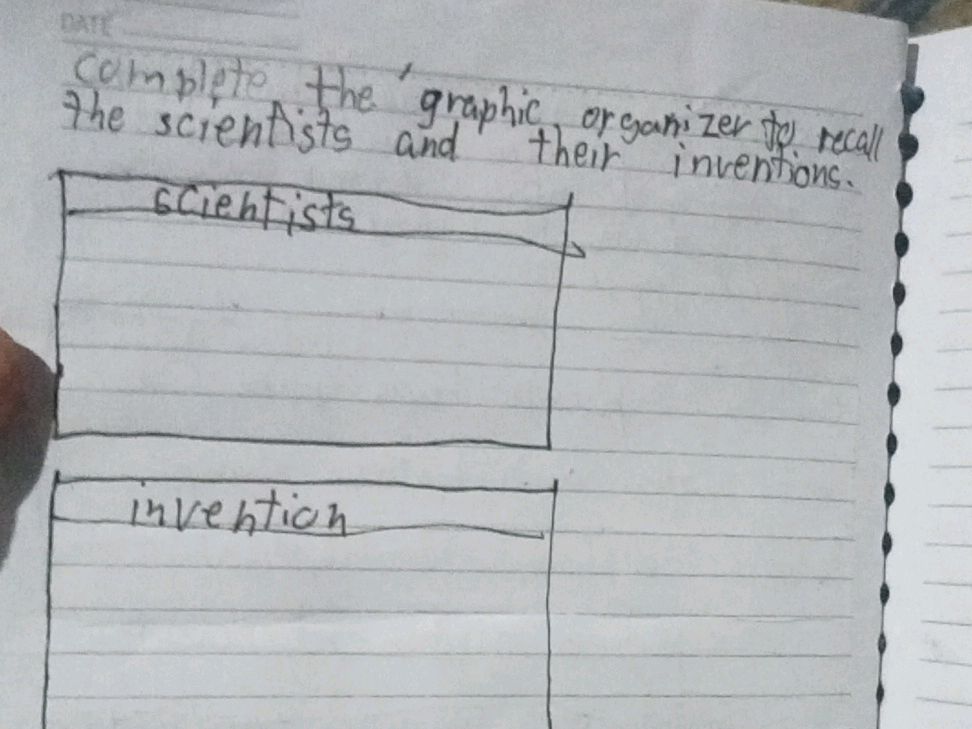 DATE
complete the graphic organizer to recall
the scientists and their inventions.
scientists
invention